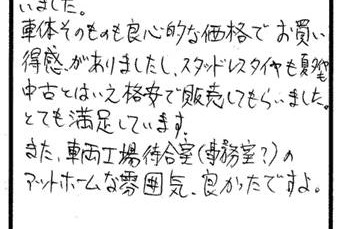 いました。
車体そのものも良心的な価格でお買い
得感がありましたし、スタッドレスタイヤも夏タイヤも
中古とはいえ格安で販売してもらいました。
とても満足しています。
また、車両工場待合室(事務室?)の
アットホームな雰囲気、良かったですよ。